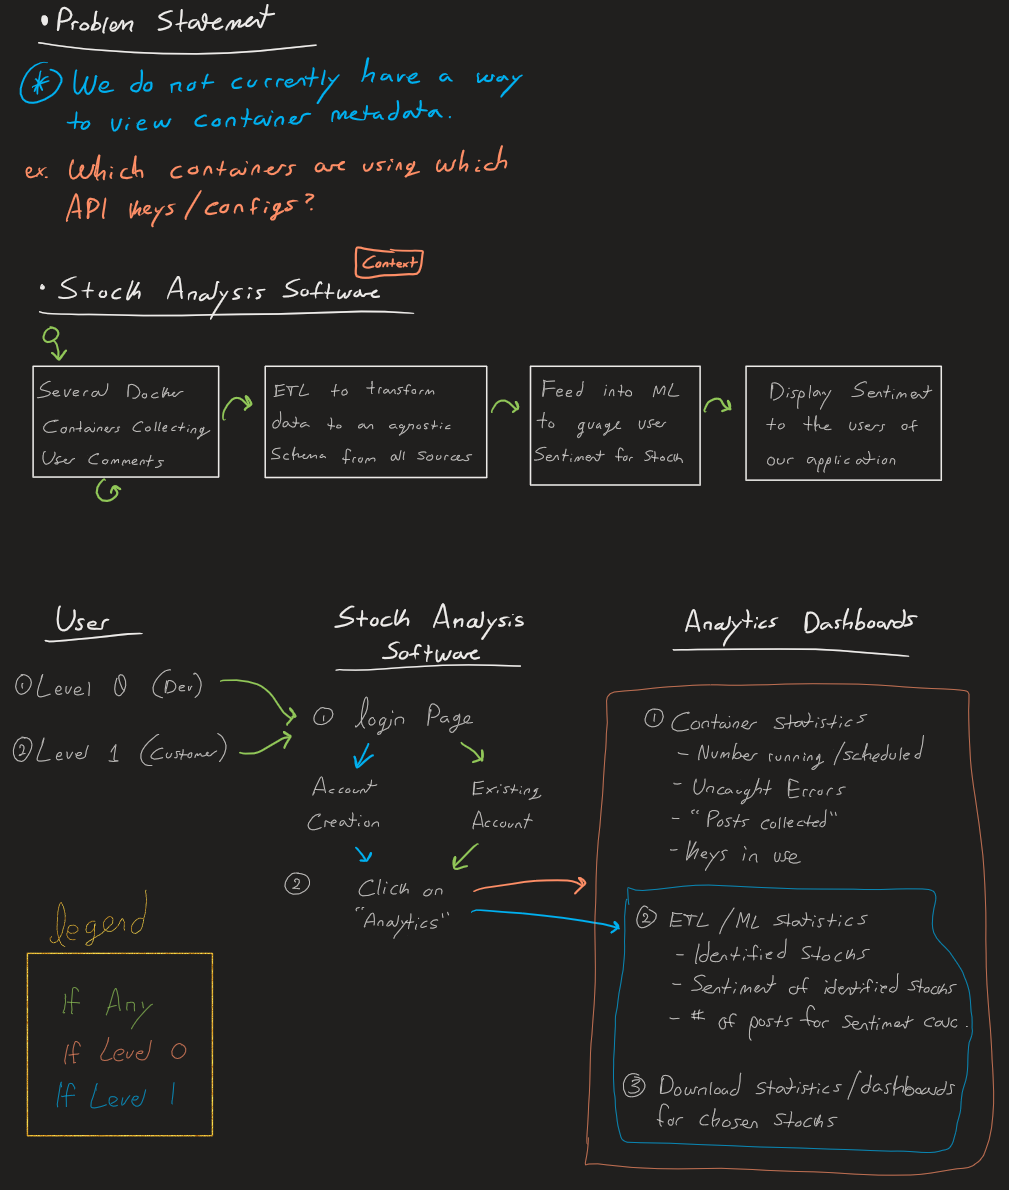 • Problem Statement
* We do not currently have a way
to view container metadata.
ex. Which containers are using which
API keys/configs?
Context
• Stock Analysis Software
Several Docker
Containers Collecting
User Comments
ETL to transform
data to an agnostic
Schema from all sources
Feed into ML
to guage user
Sentiment for Stock
Display Sentiment
to the users of
our application
User
① Level 0 (Dev)
② Level 1 (Customer)
Stock Analysis
Software
① login Page
Account
Creation
Existing
Account
② Click on
"Analytics"
Analytics Dashboards
① Container Statistics
- Number running/scheduled
- Uncaught Errors
- "Posts collected"
- Keys in use
② ETL/ML Statistics
- Identified Stocks
- Sentiment of identified stocks
- # of posts for sentimet calc.
③ Download statistics/dashboards
for chosen stocks
legend
If Any
If Level 0
If Level 1